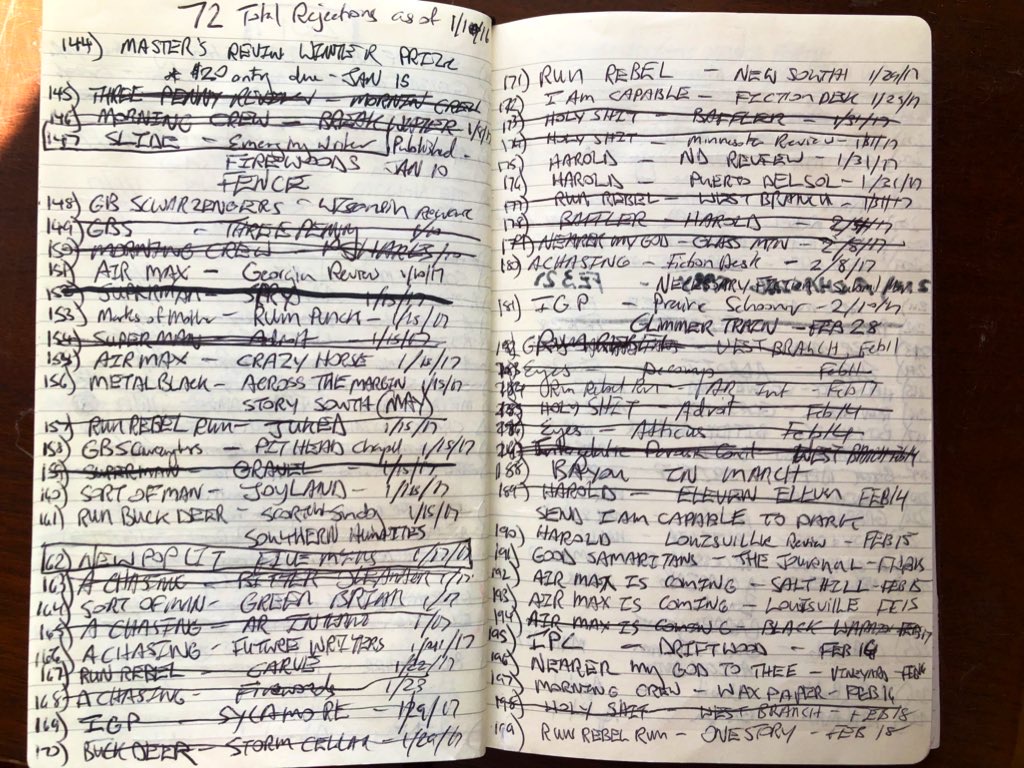 72 Total Rejections as of 1/10/16
144) MASTER'S REVIW WINTER PRIZE
* $20 entry due - JAN 15
145) THREE PENNY REVIEW - MORNING CREW
146) MORNING CREW - BREAK WATER 1/9/17
147) SLIDE - Emerging Writer Published - JAN 10
FIREWOODS
FENCE
148) GB SCWARZENGERS - Wisconsin Review
149) GBS - THREE PENNY
150) MORNING CREW -
151) AIR MAX - Georgia Review 1/10/17
152) SUPERMAN - SPRY 1/15/17
153) Marks of Mother - RUM PUNCH - 1/15/17
154) SUPERMAN - Adroit - 1/15/17
155) AIR MAX - CRAZY HORSE 1/15/17
156) METAL BLACK - ACROSS THE MARGIN 1/15/17
STORY SOUTH (MAY)
157) RUN REBEL RUN - JUKED 1/15/17
158) GBS - PITHEAD Chapel - 1/15/17
159) SUPERMAN - GRAVEL - 1/15/17
160) SORT OF MAN - JOYLAND - 1/15/17
161) RUN BUCK DEER - 1/15/17
SOUTHERN HUMANITIES
162) NEW POP LIT FIVE 1/17/17
163) A CHASING - BITTER OLEANDER 1/17
164) SORT OF MAN - GREEN BRIAR 1/17
165) A CHASING - AR 1/17
166) A CHASING - FUTURE WRITERS 1/21/17
167) RUN REBEL - CARVE 1/22/17
168) A CHASING - 1/23
169) IGP - SYCAMORE 1/29/17
170) BUCK DEER - STORM CELLAR - 1/29/17
171) RUN REBEL - NEW SOUTH 1/29/17
172) I AM CAPABLE - FICTION DESK 1/29/17
173) HOLY SHIT - BAFFLER - 1/31/17
174) HOLY SHIT - Minnesota Review - 1/31/17
175) HAROLD - ND REVIEW - 1/31/17
176) HAROLD - PUERTO DEL SOL - 1/31/17
177) RUN REBEL - WEST BRANCH - 1/31/17
178) BAFFLER - HAROLD - 2/5/17
179) NEARER MY GOD - GLASS MTN - 2/5/17
180) A CHASING - Fiction Desk - 2/8/17
NECESSARY FICTION
181) IGP - Prairie Schooner - 2/10/17
GLIMMER TRAIN - FEB 28
182) WEST BRANCH, Feb 11
183) Eyes - Decomp Feb 11
184) Run Rebel Run - AR Int - Feb 17
185) HOLY SHIT - Adroit - Feb 14
186) Eyes - Atticus Feb 14
187) WEST BRANCH
188) BAYOU IN MARCH
189) HAROLD - ELEVEN ELEVEN FEB 14
SEND I AM CAPABLE TO
190) HAROLD - LOUISVILLE Review - FEB 15
191) GOOD SAMARITANS - THE JOURNAL - FEB 15
192) AIR MAX IS COMING - SALT HILL - FEB 15
193) AIR MAX IS COMING - LOUISVILLE FE 15
194) AIR MAX IS COMING - BLACK WARRIOR FEB 17
195) IPL - DRIFTWOOD - FEB 16
196) NEARER MY GOD TO THEE - VINEYARD - FEB 16
197) MORNING CREW - WAX PAPER - FEB 16
198) HOLY SHIT - WEST BRANCH - FEB 18
199) RUN REBEL RUN - ONE STORY - FEB 18